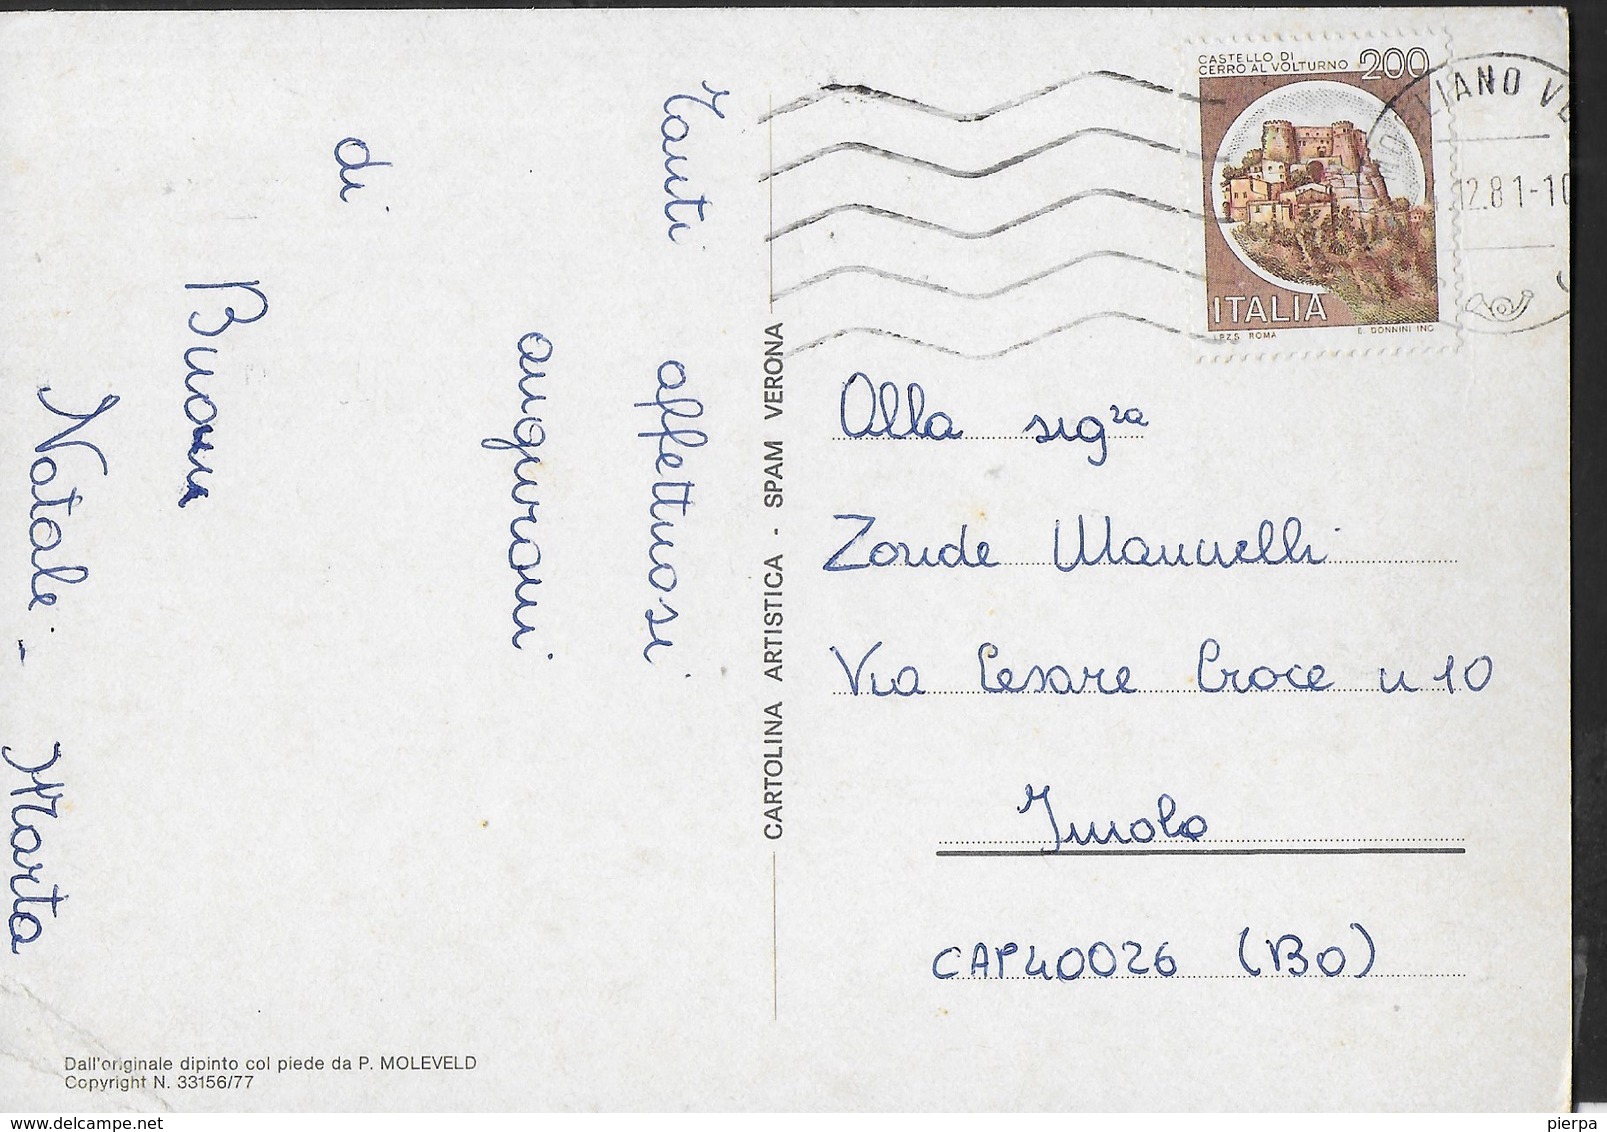 Tanti affettuosi
auguroni
di
Buon
Natale -
Marta
CARTOLINA ARTISTICA - SPAM VERONA
CASTELLO DI
CERRO AL VOLTURNO 200
ITALIA
I.P.Z.S. ROMA E. DONNINI INC.
LIANO VE
12.81-10
Alla sig.ra
Mannelli
Via Cesare Croce n 10
Imola
CAP 40026 (BO)
Dall'originale dipinto col piede da P. MOLEVELD
Copyright N. 33156/77
pierpa